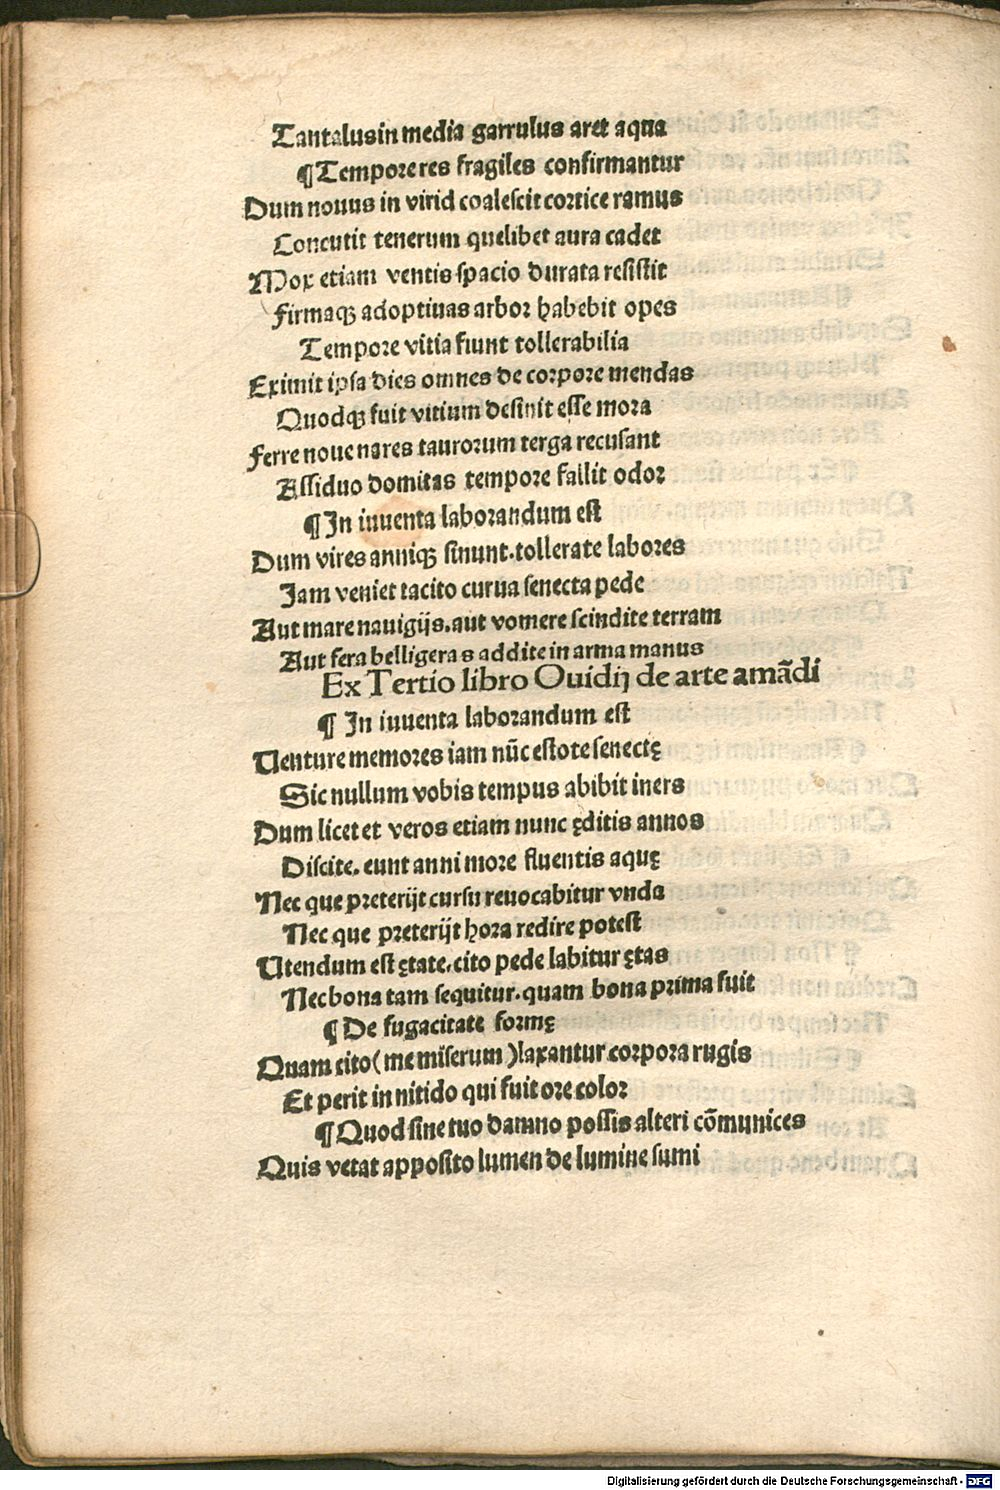 Tantalus in media garrulus aret aqua
¶ Tempore res fragiles confirmantur
Dum nouus in virid coalescit cortice ramus
Concutit tenerum quelibet aura cadet
Mox etiam ventis spacio durata resistit
Firmaqꝫ adoptiuas arbor habebit opes
Tempore vitia fiunt tollerabilia
Eximit ipsa dies omnes de corpore mendas
Quodqꝫ fuit vitium desinit esse mora
Ferre noue nares taurorum terga recusant
Assiduo domitas tempore fallit odor
¶ In iuuenta laborandum est
Dum vires anniqꝫ sinunt. tollerate labores
Iam veniet tacito curua senecta pede
Aut mare nauigijs. aut vomere scindite terram
Aut fera belligeras addite in arma manus
Ex Tertio libro Ouidij de arte amãdi
¶ In iuuenta laborandum est
Uenture memores iam nũc estote senectę
Sic nullum vobis tempus abibit iners
Dum licet et veros etiam nunc ęditis annos
Discite. eunt anni more fluentis aquę
Nec que preterijt cursu reuocabitur vnda
Nec que preterijt hora redire potest
Utendum est ętate. cito pede labitur ętas
Nec bona tam sequitur. quam bona prima fuit
¶ De fugacitate formę
Quam cito (me miserum) laxantur corpora rugis
Et perit in nitido qui fuit ore color
¶ Quod sine tuo damno possis alteri cõmunices
Quis vetat apposito lumen de lumine sumi
Digitalisierung gefördert durch die Deutsche Forschungsgemeinschaft - DFG